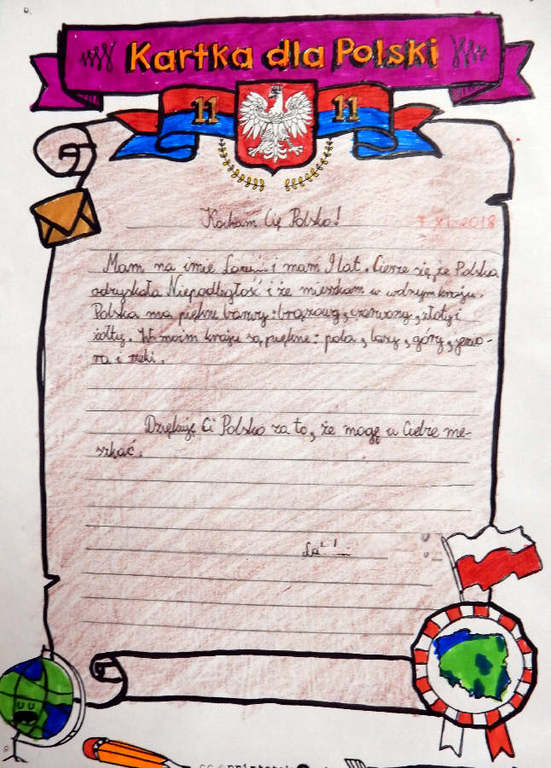 Kartka dla Polski
11 11
Kocham Cię Polsko! 7 XI 2018
Mam na imie i mam 9 lat. Ciesze się, że Polska
odzyskała Niepodległość i że mieszkam w wolnym kraju.
Polska ma piękne barwy: brązowy, czerwony, złoty i
żółty. W moim kraju są piękne: pola, lasy, góry, jezio-
ra i rzeki.
Dziękuję Ci Polsko za to, że mogę u Ciebie mie-
szkać.